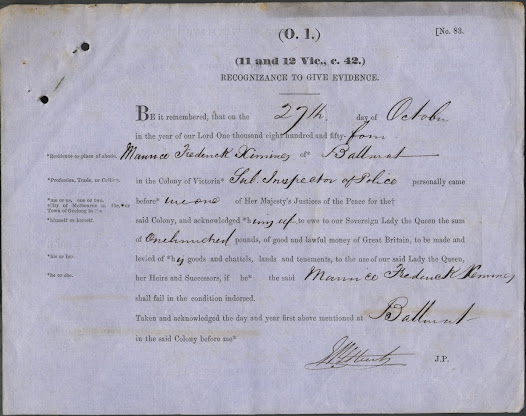 (O. 1.)
[No. 83.
(11 and 12 Vic., c. 42.)
RECOGNIZANCE TO GIVE EVIDENCE.
BE it remembered, that on the 27th day of October
in the year of our Lord One thousand eight hundred and fifty-four
*Residence or place of abode. Maurice Frederick Ximenes of* Ballarat
*Profession, Trade, or Calling. in the Colony of Victoria* Sub. Inspector of Police personally came
*me or us, one or two. before* me one of Her Majesty's Justices of the Peace for the†
†City of Melbourne in the, or
Town of Geelong in the
*himself or herself. said Colony, and acknowledged *himself to owe to our Sovereign Lady the Queen the sum
of One hundred pounds, of good and lawful money of Great Britain, to be made and
*his or her. levied of *his goods and chattels, lands and tenements, to the use of our said Lady the Queen,
*he or she. her Heirs and Successors, if he* the said Maurice Frederick Ximenes
shall fail in the condition indorsed.
Taken and acknowledged the day and year first above mentioned at Ballarat
in the said Colony before me*
J.P.